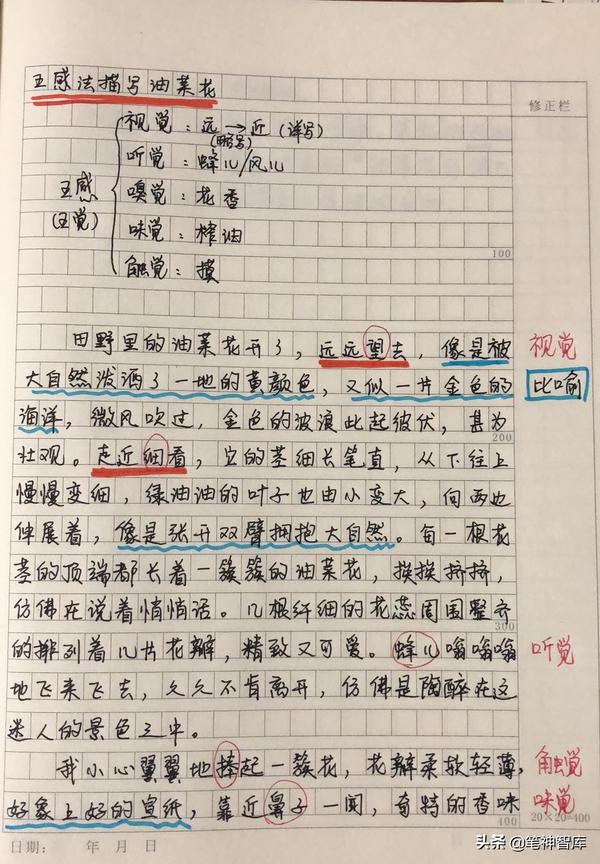 五感法描写油菜花
修正栏
视觉：远→近（详写）
（略写）
听觉：蜂儿/风儿
五感
嗅觉：花香
（五觉）
味觉：榨油
100
触觉：摸
田野里的油菜花开了，远远望去，像是被 视觉
大自然泼洒了一地的黄颜色，又似一片金色的 比喻
海洋，微风吹过，金色的波浪此起彼伏，甚为
200
壮观。走近细看，它的茎细长笔直，从下往上
慢慢变细，绿油油的叶子也由小变大，向两边
伸展着，像是张开双臂拥抱大自然。每一根花
茎的顶端都长着一簇簇的油菜花，挨挨挤挤，
仿佛在说着悄悄话。几根纤细的花蕊周围整齐
300
的排列着几片花瓣，精致又可爱。蜂儿嗡嗡嗡 听觉
地飞来飞去，久久不肯离开，仿佛是陶醉在这
迷人的景色之中。
我小心翼翼地捧起一簇花，花瓣柔软轻薄， 触觉
好象上好的宣纸，靠近鼻子一闻，奇特的香味 味觉
400
20×20=400
日期： 年 月 日
头条 @笔神智库